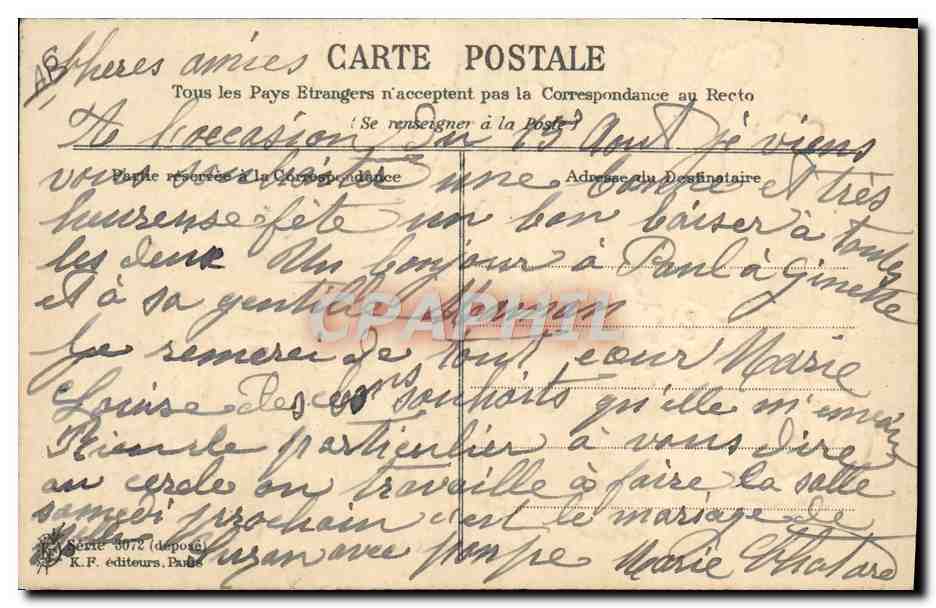 Chères amies
CARTE POSTALE
Tous les Pays Etrangers n'acceptent pas la Correspondance au Recto
(Se renseigner à la Poste)
A l'occasion du 15 Aout je viens
Partie réservée à la Correspondance
Adresse du Destinataire
vous souhaité une bonne et très
heureuse fête un bon baiser à toutes
les deux Un bonjour à Paul à Ginette
et à sa gentille Maman
CPAPHIL
Je remerci de tout cœur Marie
Louise des bons souhaits qu'elle m'envoie
Rien de particulier à vous dire
au cercle on travaille à faire la salle
samedi prochain c'est le mariage de
avec pompe Marie Chatard
Série 3072 (déposé)
K.F. éditeurs, Paris